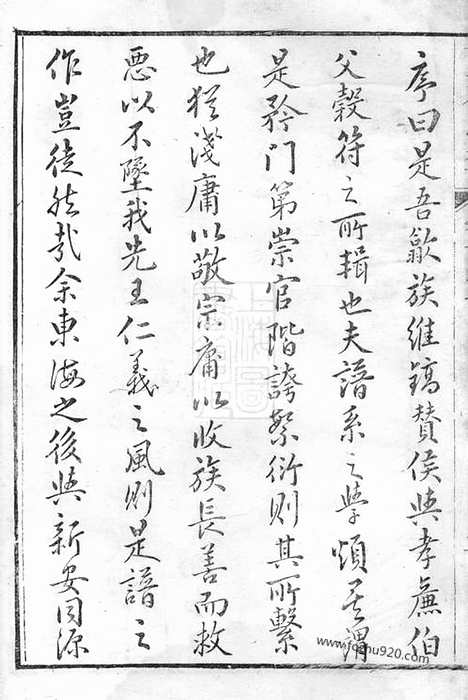 序曰是吾歙族維鎬贊侯與孝廉伯
父穀符之所輯也夫譜系之學煩矣謂
是矜門第崇官階誇繁衍則其所繫
也猶淺庸以敬宗庸以收族長善而救
惡以不墜我先王仁義之風則是譜之
作豈徒然哉余東海之後與新安同源
www.foshu920.com